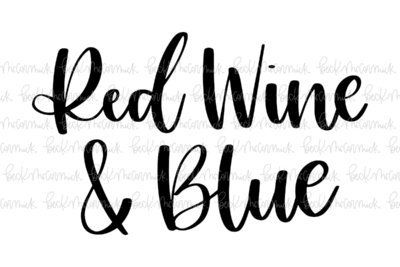 Red Wine
& Blue